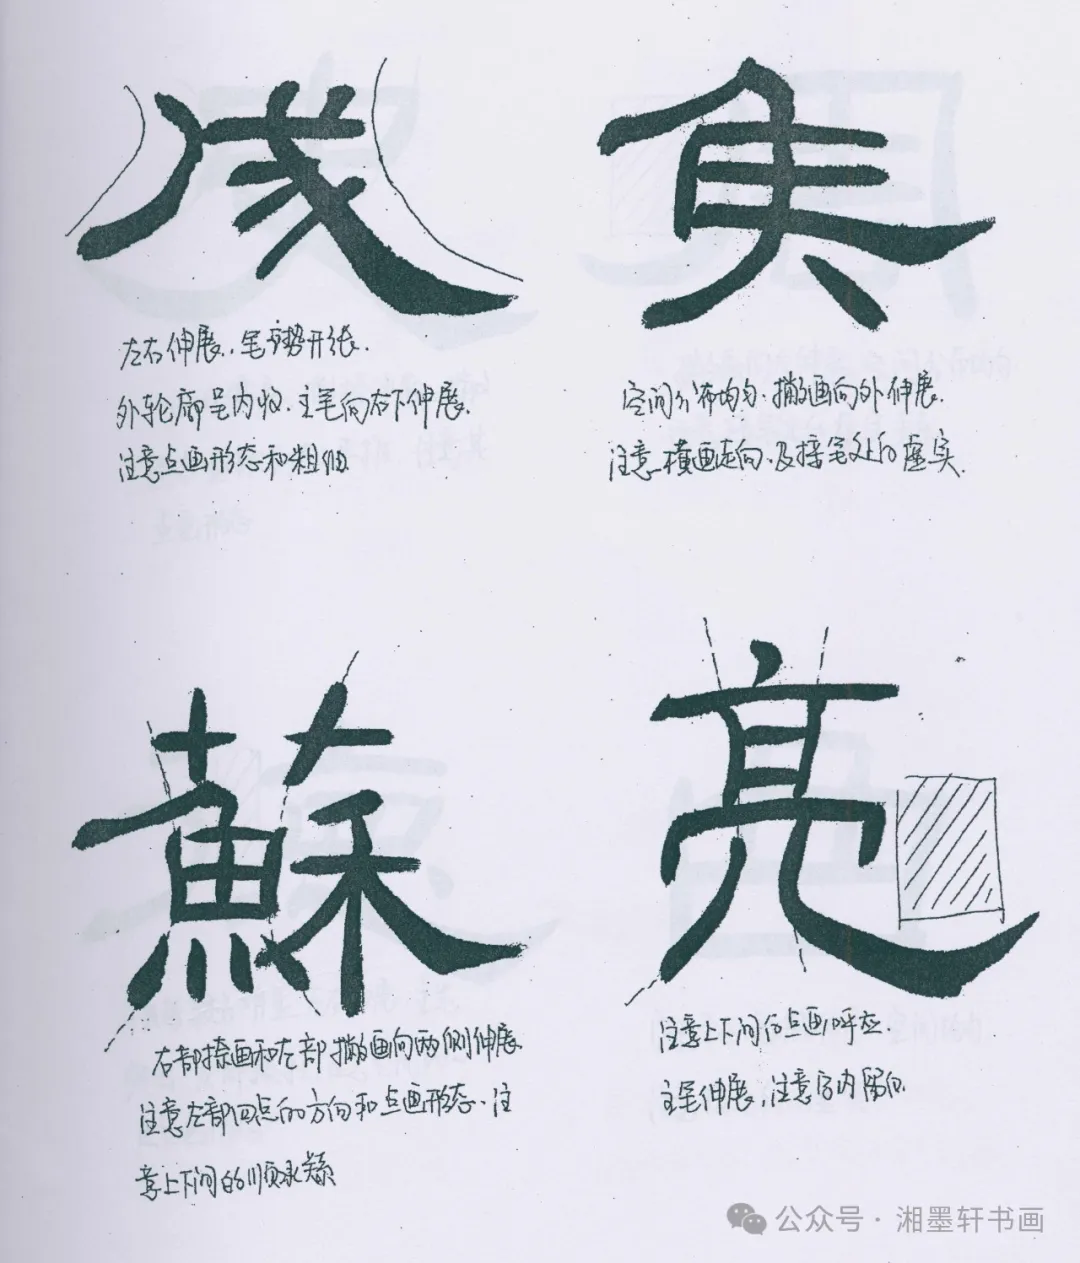 左右伸展,笔势开张.
外轮廓呈内收.主笔向右下伸展.
注意点画形态和粗细
空间分布均匀.撇画向外伸展.
注意横画走向.及接笔处的虚实.
蘇
右部捺画和左部撇画向两侧伸展
注意左部四点的方向和点画形态.注
意上下间的顺承
亮
注意上下间的点画呼应.
主笔伸展,注意字内留白
公众号·湘墨轩书画